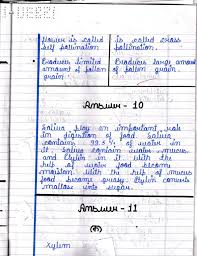 flower is called
self pollination
is called cross
pollination.
Produces limited
amount of pollen
grain
Produces large amount
of pollen grain.
Answer - 10
Saliva play an important role
in digestion of food. Saliva
contains 99.5% of water in
it. Saliva contain water mucus
and Ptylin in it. With the
help of water food become
moisten. With the help of mucus
food become greasy. Ptylin converts
maltose into sugar.
Answer - 11
Xylem